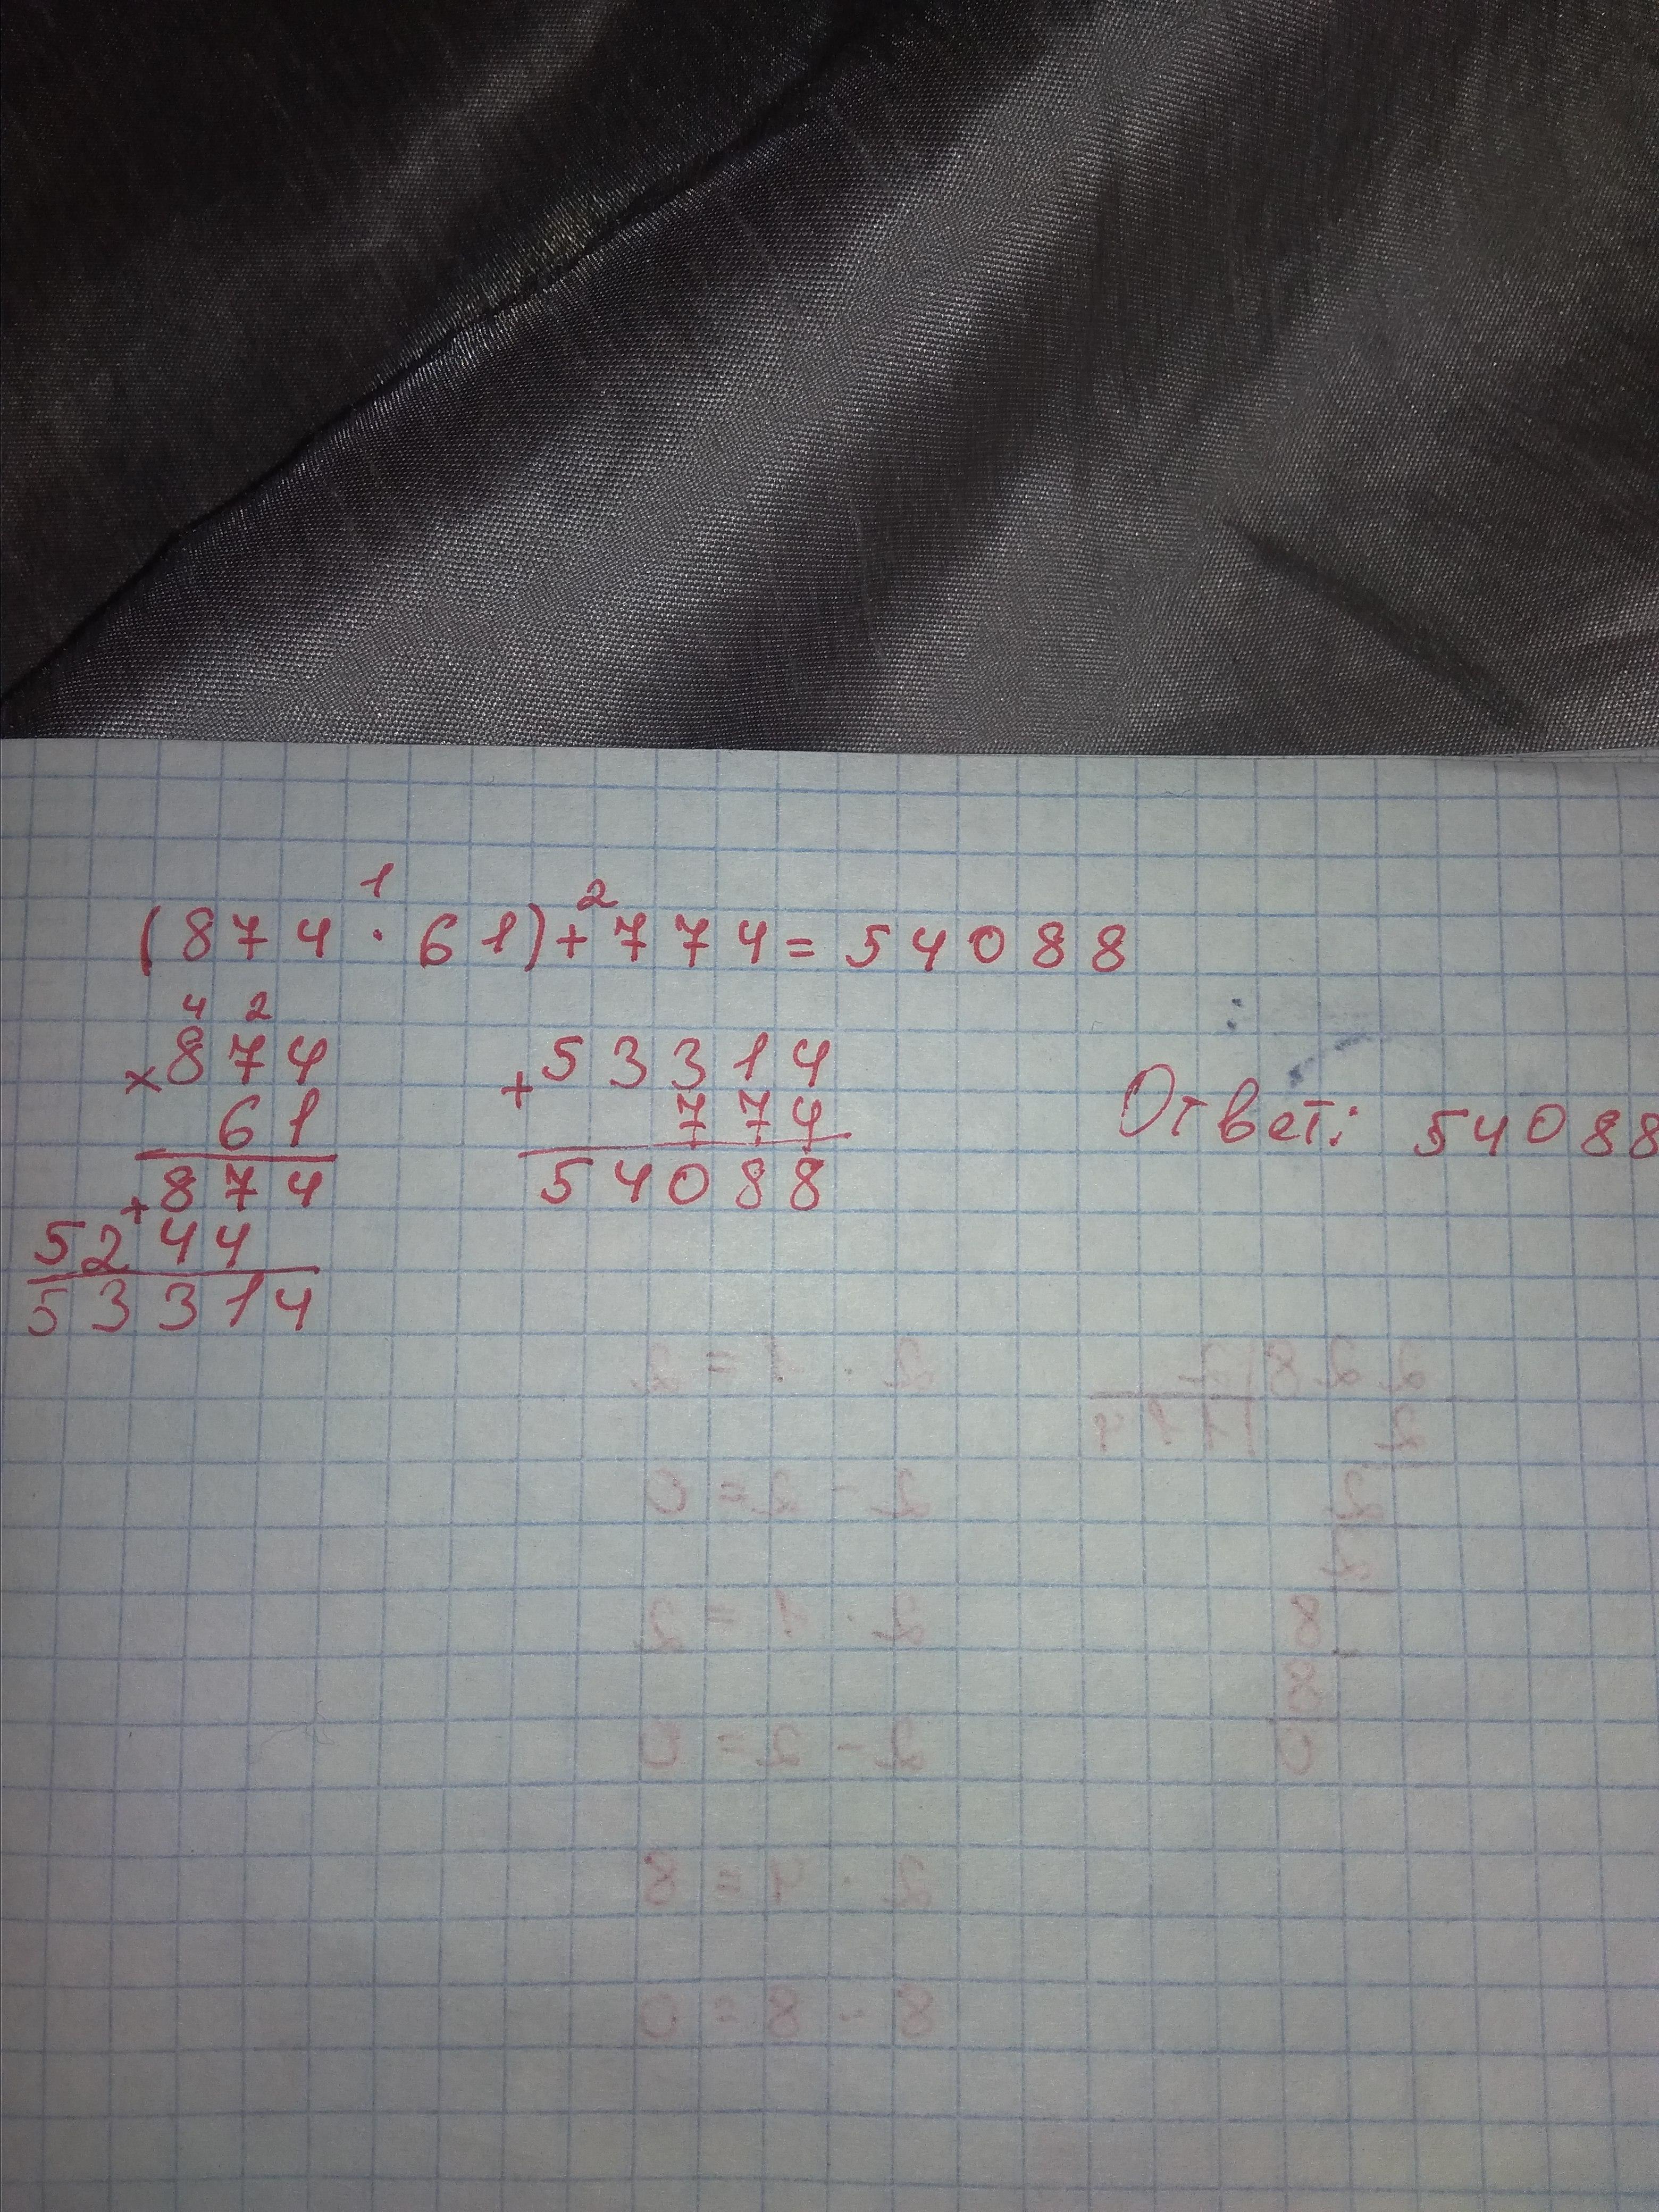 1 2
(874·61)+774=54088
4 2
×874
61
874
+
5244
53314
+53314
774
54088
Ответ: 54088